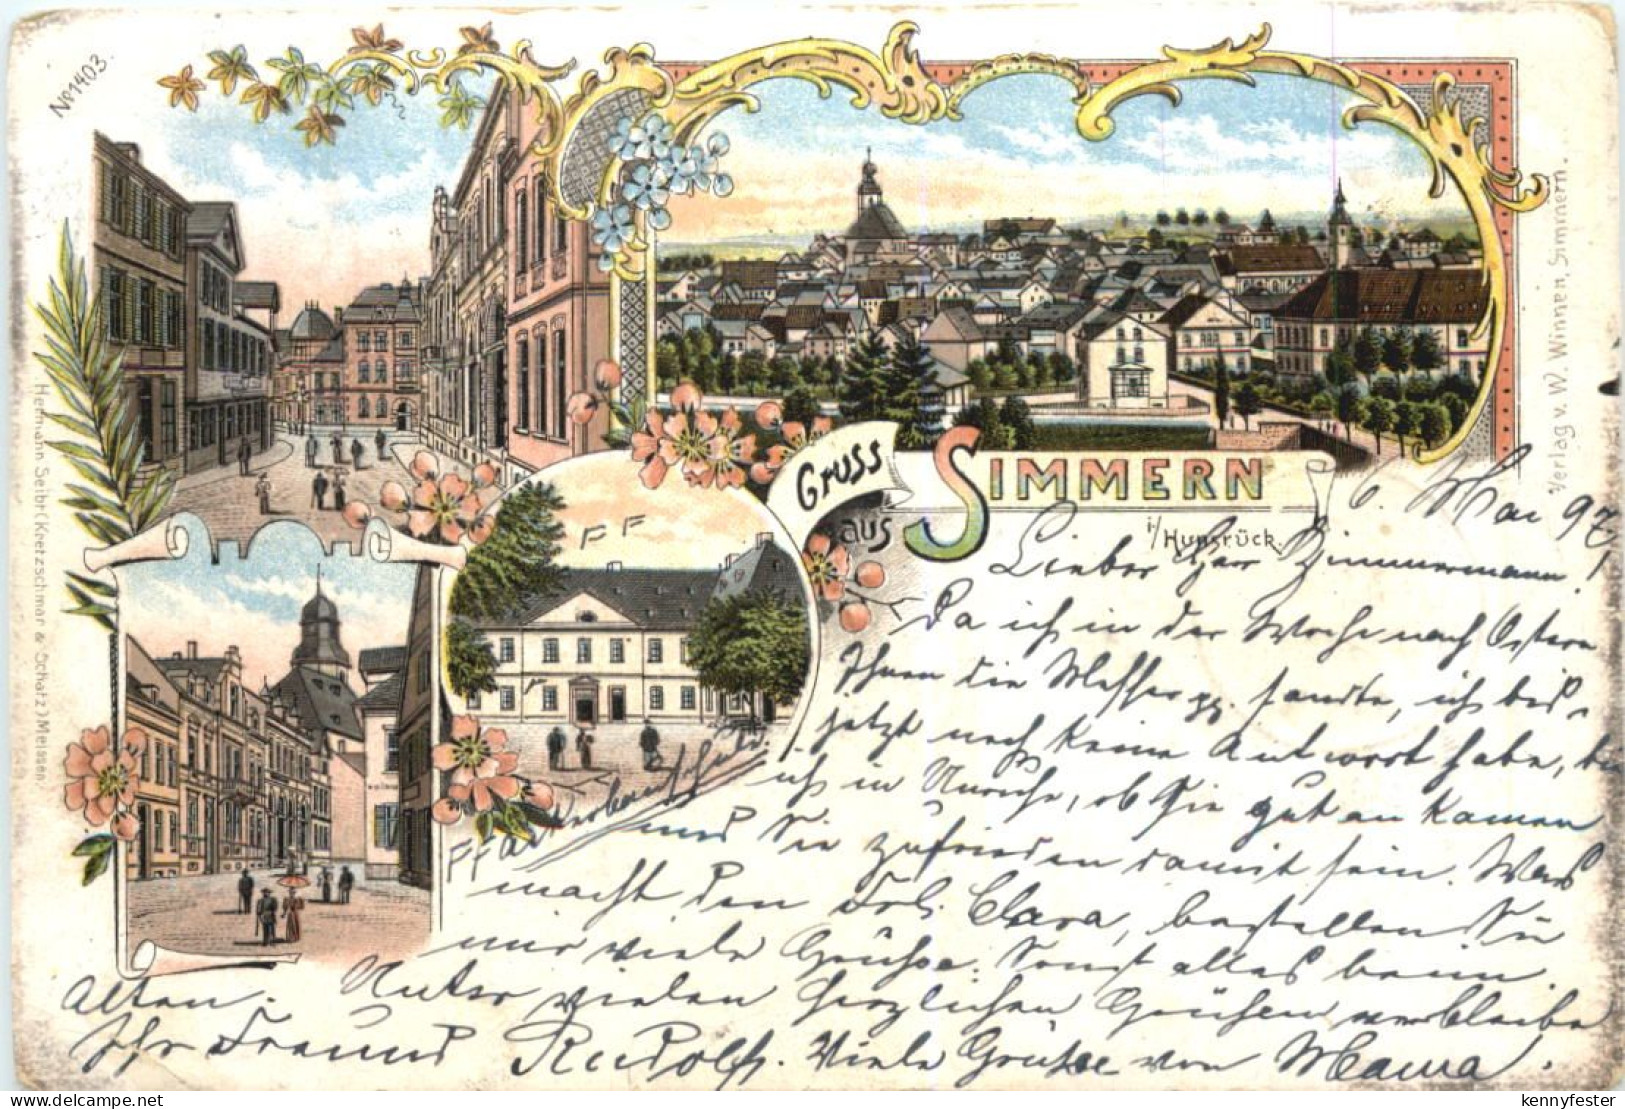 No 1403.
Gruss
aus
SIMMERN
i/Hunsrück.
Verlag v. W. Winnen, Simmern.
Hermann Seibt (Kretzschmar & Schatz) Meissen.
6. Mai 97
Lieber Herr Zimmermann!
Da ich in der Woche nach Ostern
Ihnen die Messer pp. sandte, ich bis
jetzt noch keine Antwort habe, bin
ich in Unruhe, ob Sie gut an kamen
und Sie zufrieden damit sein. Was
macht den Frl. Clara, bestellen Sie
mir viele Grüße. Sonst alles beim
alten. Unter vielen herzlichen Grüßen verbleibe
Ihr Freund Rudolf. Viele Grüße von Mama.